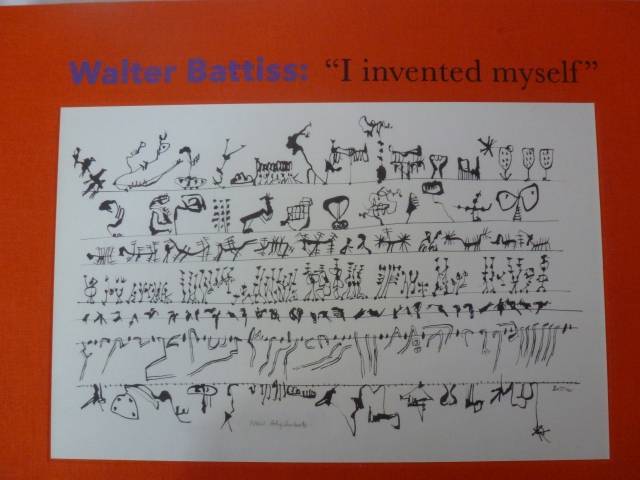 Walter Battiss: “I invented myself”